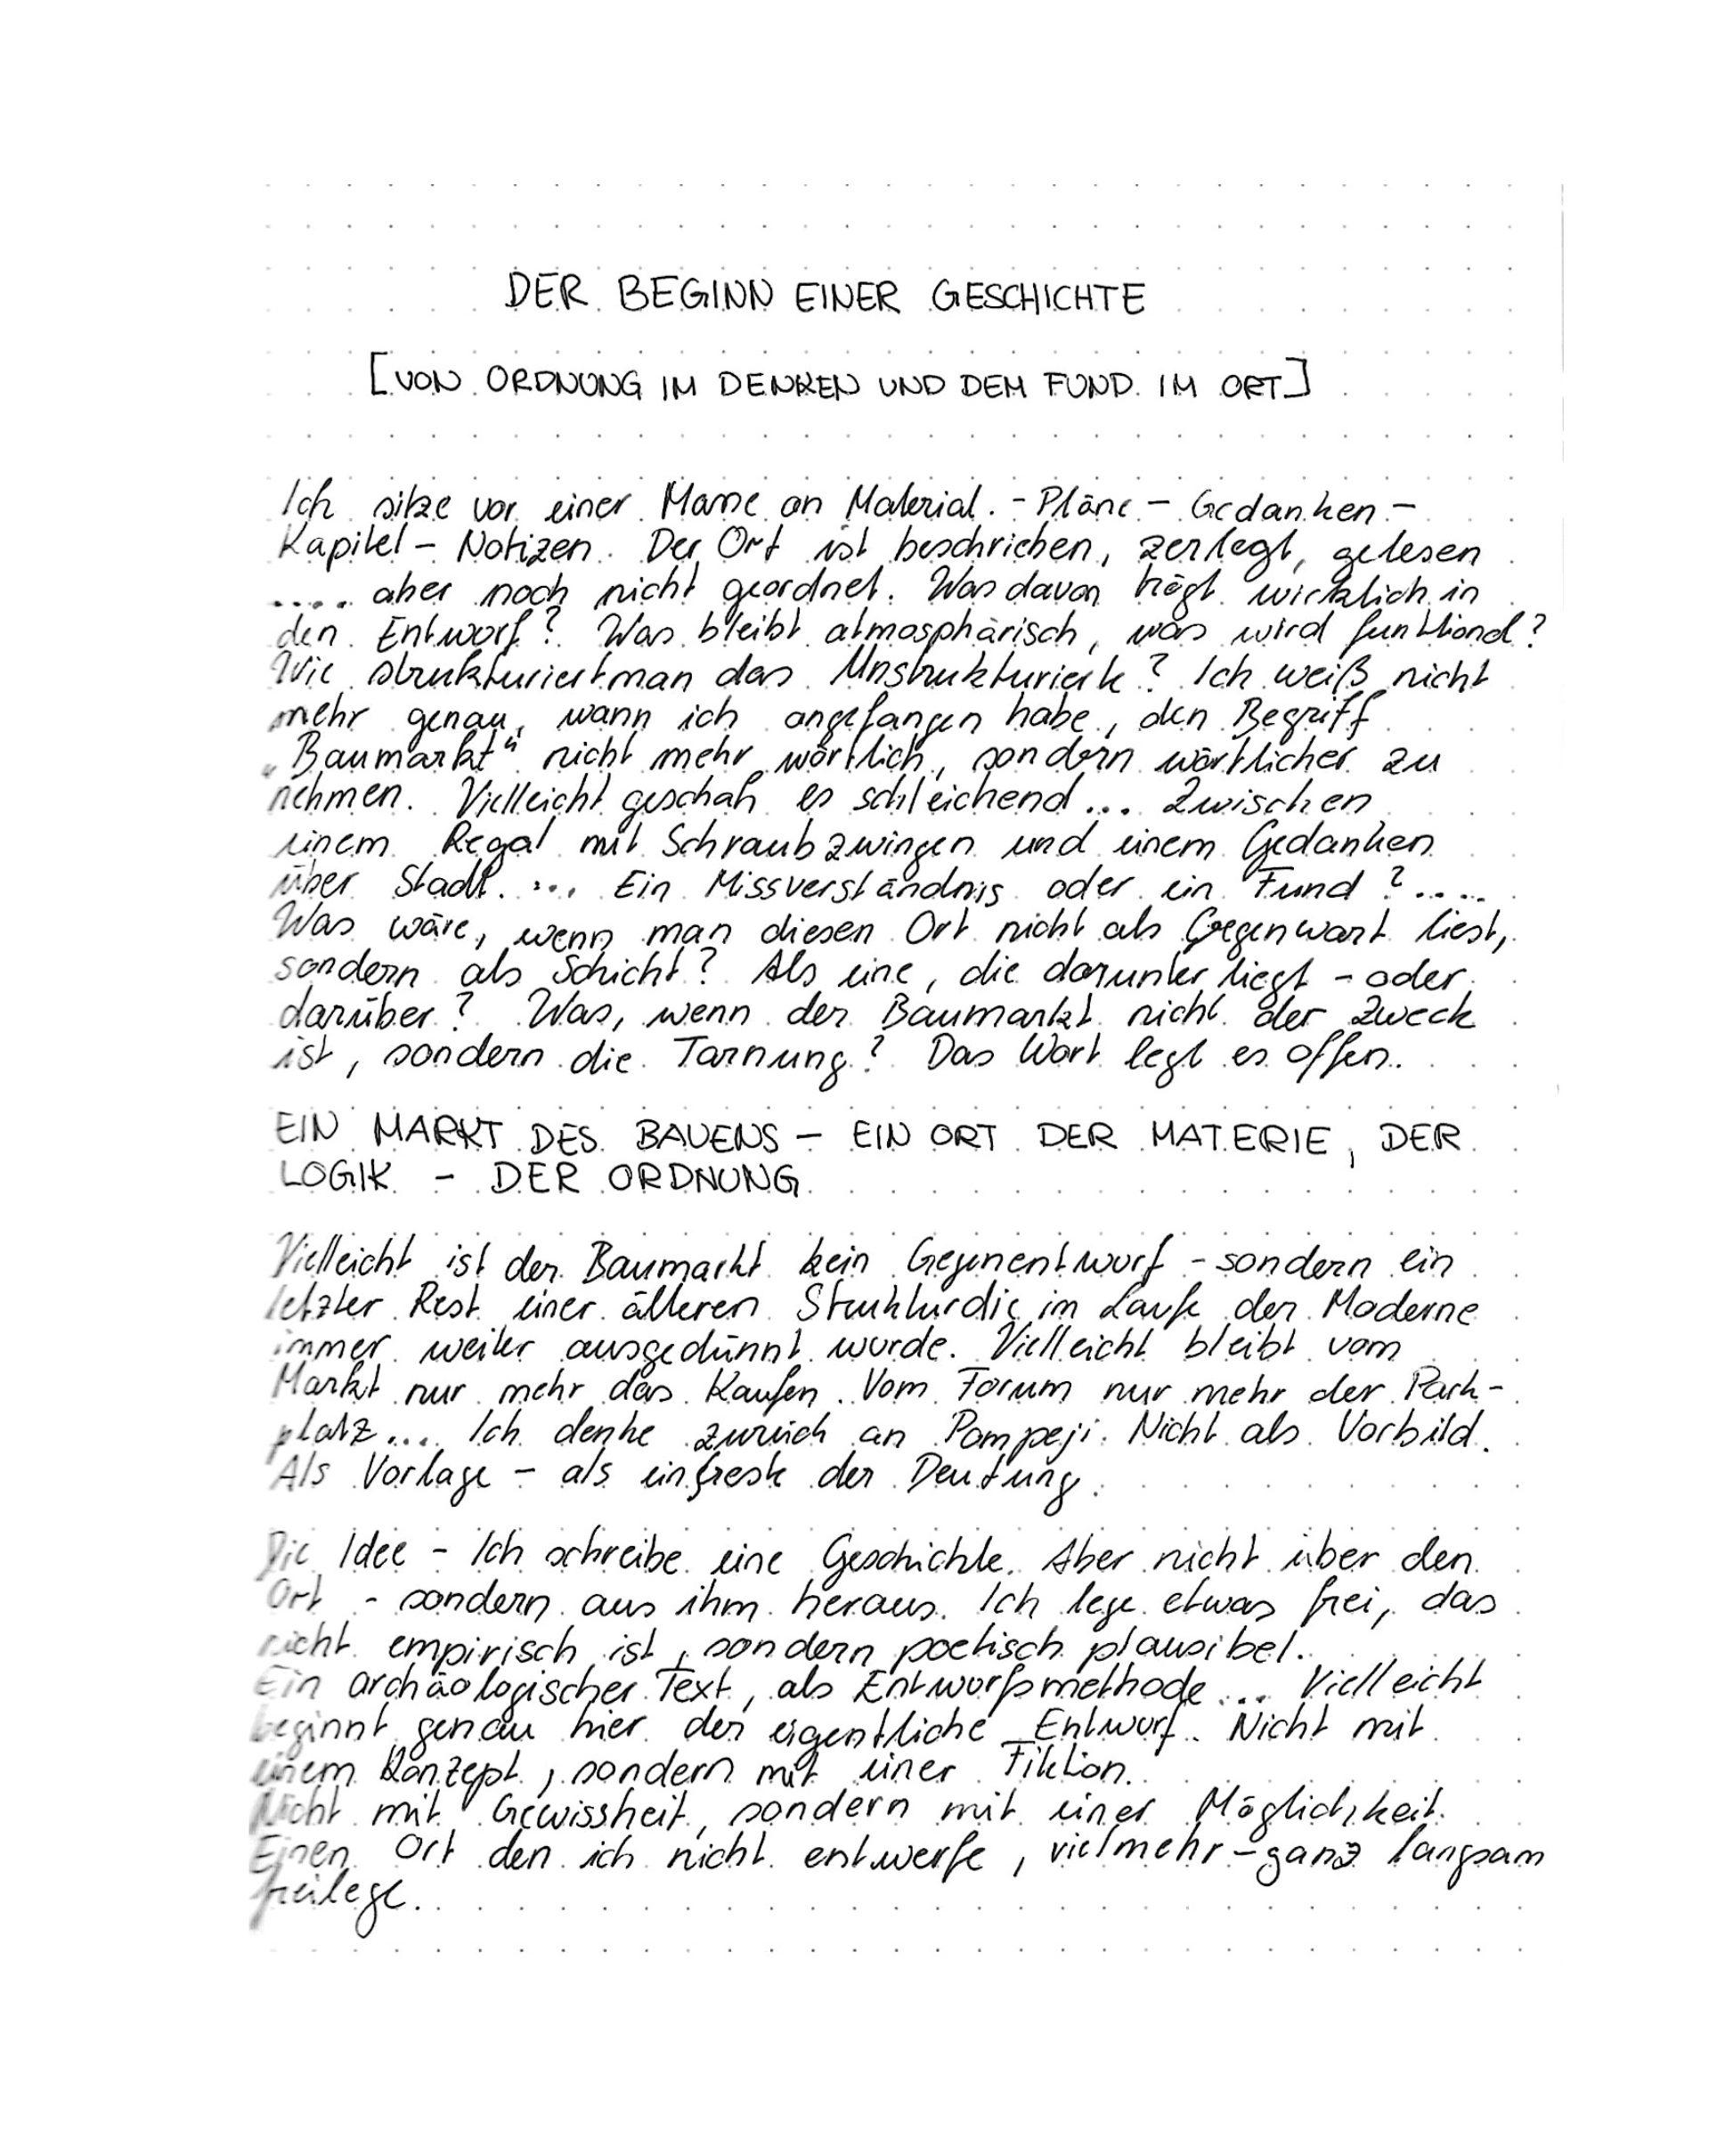 DER BEGINN EINER GESCHICHTE
[VON ORDNUNG IM DENKEN UND DEM FUND IM ORT]
Ich sitze vor einer Masse an Material. - Pläne - Gedanken -
Kapitel - Notizen. Der Ort ist beschrieben, zerlegt, gelesen
.... aber noch nicht geordnet. Was davon trägt wirklich in
den Entwurf? Was bleibt atmosphärisch, was wird funktional?
Wie strukturiert man das Unstrukturierte? Ich weiß nicht
mehr genau, wann ich angefangen habe, den Begriff
„Baumarkt“ nicht mehr wörtlich, sondern wörtlicher zu
nehmen. Vielleicht geschah es schleichend... Zwischen
einem Regal mit Schraubzwingen und einem Gedanken
über Stadt.... Ein Missverständnis oder ein Fund?.....
Was wäre, wenn man diesen Ort nicht als Gegenwart liest,
sondern als Schicht? Als eine, die darunter liegt - oder
darüber? Was, wenn der Baumarkt nicht der Zweck
ist, sondern die Tarnung? Das Wort legt es offen.
EIN MARKT DES BAUENS - EIN ORT DER MATERIE, DER
LOGIK - DER ORDNUNG
Vielleicht ist der Baumarkt kein Gegenentwurf - sondern ein
letzter Rest einer älteren Struktur die im Laufe der Moderne
immer weiter ausgedünnt wurde. Vielleicht bleibt vom
Markt nur mehr das Kaufen. Vom Forum nur mehr der Park-
platz... Ich denke zurück an Pompeji. Nicht als Vorbild.
Als Vorlage - als ein der Deutung.
Die Idee - Ich schreibe eine Geschichte. Aber nicht über den
Ort - sondern aus ihm heraus. Ich lege etwas frei, das
nicht empirisch ist, sondern poetisch plausibel.
Ein archäologischer Text, als Entwurfsmethode... Vielleicht
beginnt genau hier der eigentliche Entwurf. Nicht mit
einem Konzept, sondern mit einer Fiktion.
Nicht mit Gewissheit, sondern mit einer Möglichkeit.
Einen Ort den ich nicht entwerfe, vielmehr - ganz langsam
freilege.